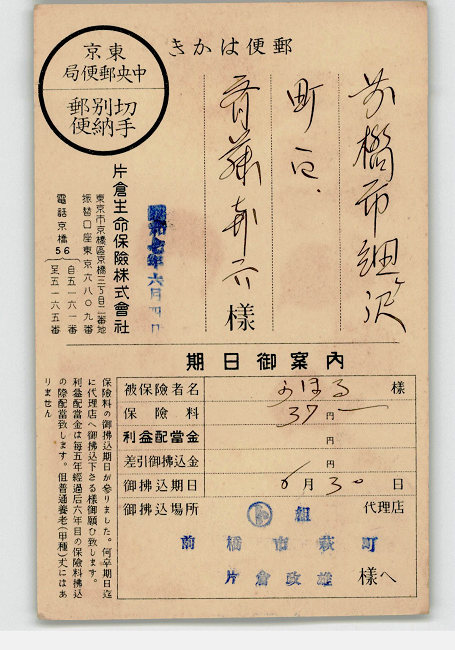 郵便はかき
東京
中央郵便局
切手別納郵便
前橋市細沢
町
斉藤
様
昭和七年六月四日
片倉生命保險株式會社
東京市京橋區京橋三丁目二番地
振替口座東京六八〇九番
電話京橋56
自五一六一番
至五一六五番
期日御案內
被保險者名 様
保險料 37円
利益配當金 円
差引御拂込金 円
御拂込期日 6月30日
御拂込場所 組 代理店
前橋市萩町
片倉改雄 様へ
保險料の御拂込期日が參りました。何卒期日迄
に代理店へ御拂込下さる樣御願ひ致します。
利益配當金は每五年經過后六年目の保險料拂込
の際配當致します。但普通養老(甲種)丈にはあ
りません